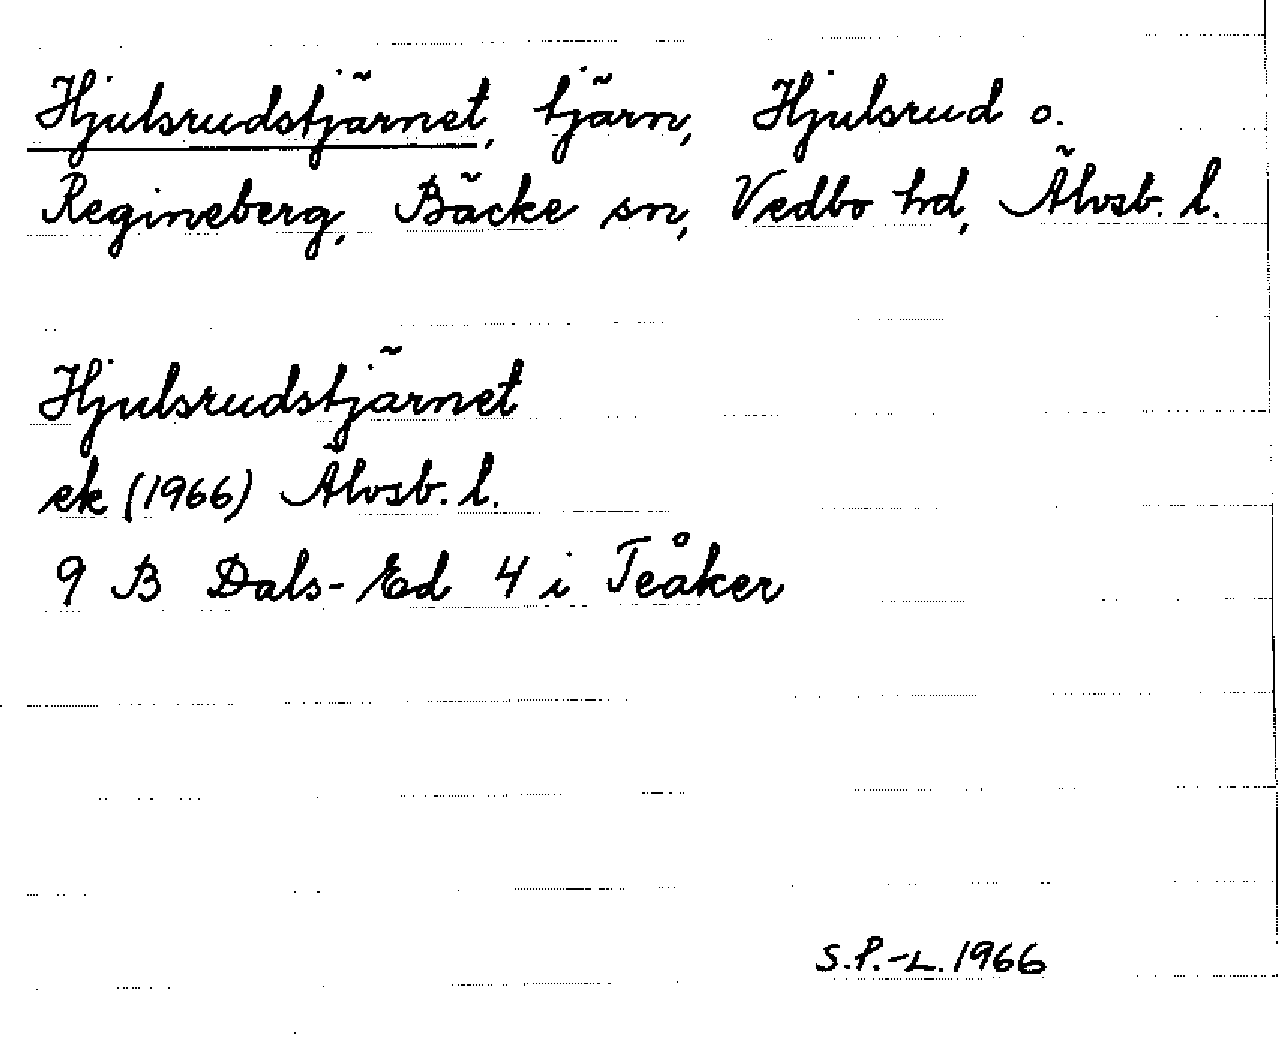 Hjulsrudstjärnet, tjärn, Hjulsrud o.
Regineberg, Bäcke sn, Vedbo hd, Älvsb. l.
Hjulsrudstjärnet
ek (1966) Älvsb. l.
9 B Dals-Ed 4 i Teåker
S.P.-L. 1966